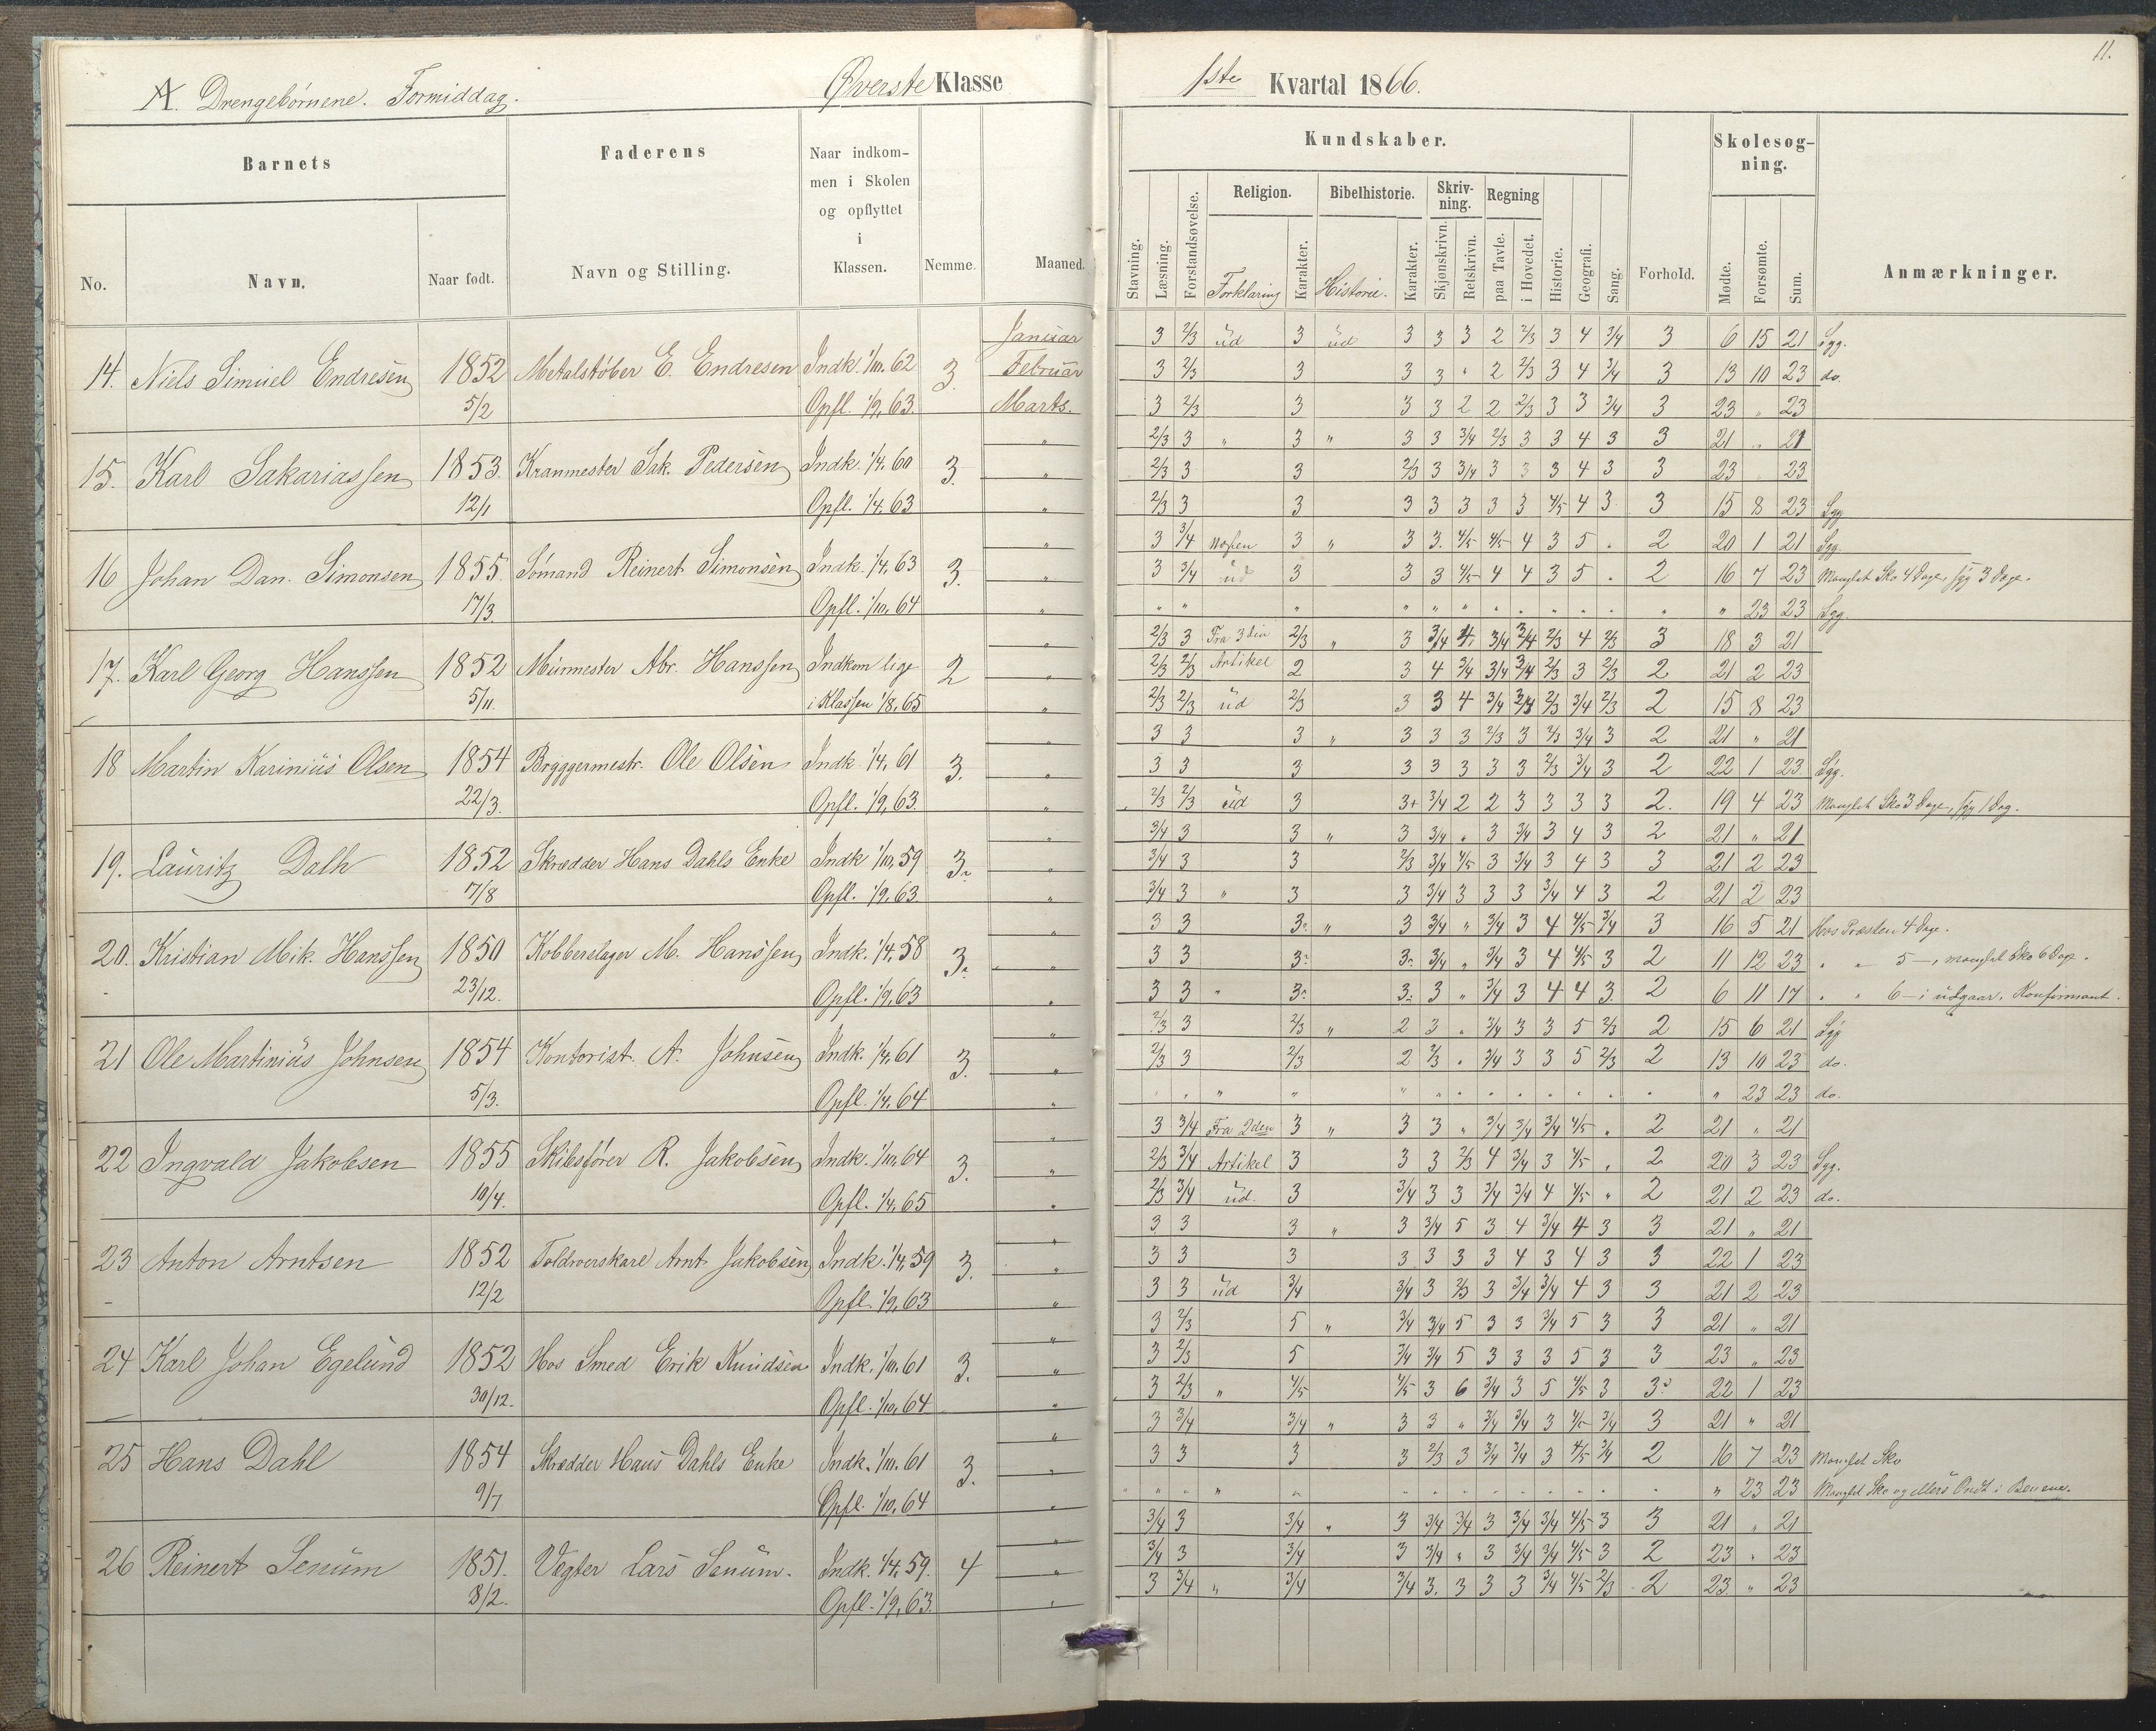 A. Drengebørnene. Formiddag. Øverste Klasse
1ste Kvartal 1866.
11.
Barnets
Faderens
Naar indkom-
men i Skolen
og opflyttet
i
Klassen.
Nemme.
Maaned.
No.
Navn.
Naar født.
Navn og Stilling.
Kundskaber.
Forhold.
Skolesøg-
ning.
Anmærkninger.
Stavning.
Læsning.
Forstandsøvelse.
Religion.
Forklaring
Karakter.
Bibelhistorie.
Historie.
Karakter.
Skriv-
ning.
Skjønskrivn.
Retskrivn.
Regning
paa Tavle.
i Hovedet.
Historie.
Geografi.
Sang.
Mødte.
Forsømte.
Sum.
14. Niels Simuel Endresen 1852 Metalstøber E. Endresen Indk. 1/10. 62 3. Januar
Februar
5/2 Opfl. 1/9. 63. Marts.
3 2/3 ud 3 ud 3 3 3 2 2/3 3 4 3/4 3 6 15 21 Syg.
3 2/3 3 3 3 " 2 2/3 3 4 3/4 3 13 10 23 do.
3 2/3 3 3 3 2 2 2/3 3 3 3/4 3 23 " 23
15. Karl Sakariassen 1853. Kranmester Sak. Pedersen Indk. 1/4. 60 3.
12/1 Opfl. 1/4. 63
2/3 3 " 3 " 3 3 3/4 2/3 3 3 4 3 3 21 " 21
2/3 3 3 2/3 3 3/4 3 3 3 4 3 3 23 23
2/3 3 3 3 3 3 3 3 4/5 4 3 3 15 8 23 Syg
16 Johan Dan. Simonsen 1855. Sømand Reinert Simonsen Indk. 1/4. 63 3.
17/3. Opfl. 1/10. 64
3 3/4 3 " 3 3. 4/5 4/5 4 3 5 . 2 20 1 21 Syg.
3 3/4 ud 3 3 3 4/5 4 4 3 5 . 2 16 7 23 Manglet Sko 4 Dage, syg 3 Dage.
" 23 23 Syg.
17. Karl Georg Hanssen 1852 Murmester Abr. Hanssen Indkom lige 2
5/11. i Klassen 1/8. 65
2/3 3 Fra 3die 2/3 " 3 3/4 4 3/4 3/4 2/3 4 2/3 3 18 3 21
2/3 2/3 Artikel 2 3 4 3/4 3/4 3/4 2/3 3 2/3 2 21 2 23
2/3 2/3 ud 2/3 3 3 4 3/4 3/4 2/3 3/4 2/3 2 15 8 23
18 Martin Karinius Olsen 1854 Bryggermestr. Ole Olsen Indk. 1/4. 61 3.
22/3. Opfl. 1/9. 63.
3 3 3 " 3 3 3 2/3 3 2/3 3/4 3 2 21 " 21
3 3 3 3 3 3 3 3 2/3 3/4 3 2 22 1 23 Syg.
2/3 2/3 ud 3 3+ 3/4 2 2 3 3 3 3 2. 19 4 23 Manglet Sko 3 Dage, syg 1 Dag.
19. Lauritz Dalh 1852 Skrædder Hans Dahls Enke Indk 1/10. 59 3.
7/8 Opfl. 1/9. 63.
3/4 3 3 " 3 3/4 " 3 3/4 3 4 3 2 21 " 21
3/4 3 3 2/3 3/4 4/5 3 3/4 3 4 3 3 21 2 23
3/4 3 " 3 3 3/4 3 3 3 3/4 4 3 2 21 2 23
20. Kristian Mik. Hanssen 1850 Kobberslager M. Hanssen Indk. 1/4. 58 3.
23/12. Opfl. 1/9. 63
3 3 3 " 3 3/4 " 3/4 3 4 4/5 3/4 3 16 5 21 Hos Præsten 4 Dage.
3 3 3 3 3/4 " 3/4 3 4 4/5 3 2 11 12 23 " " 5 —, manglet Sko 6 Dage.
3 3 " 3 3 3 " 3/4 3 4 4 3 2 6 11 17 " " 6 — i udgaar. Konfirmant.
21 Ole Martinius Johnsen 1854 Kontorist A. Johnsen Indk. 1/4. 61 3.
5/3. Opfl. 1/4. 64
2/3 3 2/3 " 2 3 " 3/4 3 3 5 2/3 2 15 6 21 Syg
2/3 3 2/3 2 2/3 " 3/4 3 3 5 2/3 2 13 10 23 do.
" 23 23 do.
22 Ingvald Jakobsen 1855 Skibsfører R. Jakobsen Indk. 1/10. 64 3.
10/4. Opfl. 1/4. 65
3 3/4 Fra 2den 3 " 3 3 " 3/4 3/4 3/4 4/5 " 2 21 " 21
2/3 3/4 Artikel 3 3 3 2/3 4 3/4 3 4/5 " 2 20 3 23 Syg.
2/3 3/4 ud. 3 3/4 3 3 3/4 3/4 4 4/5 " 2 21 2 23 do.
23 Anton Arntsen 1852 Arnt Jakobsen Indk. 1/4. 59 3.
12/2 Opfl. 1/9. 63
3 3 3 " 3 3/4 5 3 4 3/4 4 3 3 21 " 21
3 3 3 3 3 3 3 4 3 4 3 3 22 1 23
3 3 ud 3/4 3/4 3 2/3 3 3/4 3/4 4 3 3 21 2 23
24 Karl Johan Egelund 1852 Hos Smed Erik Knudsen Indk. 1/10. 61 3.
30/12. Opfl. 1/10. 64
3 2/3 5 " 3/4 3/4 5 3 3 3/4 5 3 3 21 " 21
3 2/3 5 3/4 3/4 5 3 3 3 5 3 3 23 " 23
3 2/3 " 4/5 4/5 3 6 3/4 3 5 4/5 3 3 22 1 23
25 Hans Dahl 1854 Skrædder Hans Dahls Enke Indk. 1/10. 61 3.
9/7 Opfl. 1/10. 64
3 3/4 3/4 " 3 3 " 3/4 3/4 3 4/5 3/4 3 21 " 21
3 3 3 3 2/3 3 3/4 3/4 3 4/5 3/4 2 16 7 23 Manglet Sko
" 23 23 Manglet Sko og ellers Ondt i Benene.
26 Reinert Senum 1851. Vægter Lars Senum. Indk. 1/4. 59. 4
8/2. Opfl. 1/9. 63.
3/4 3 3/4 " 3 3/4 3/4 3 3/4 3/4 4/5 3 3 21 " 21
3/4 3 3/4 3 3/4 " 3 3/4 3/4 4/5 3 2 23 " 23
3 3/4 " 3/4 3/4 3. 3 3 3 3/4 4/5 2/3 2 23 " 23